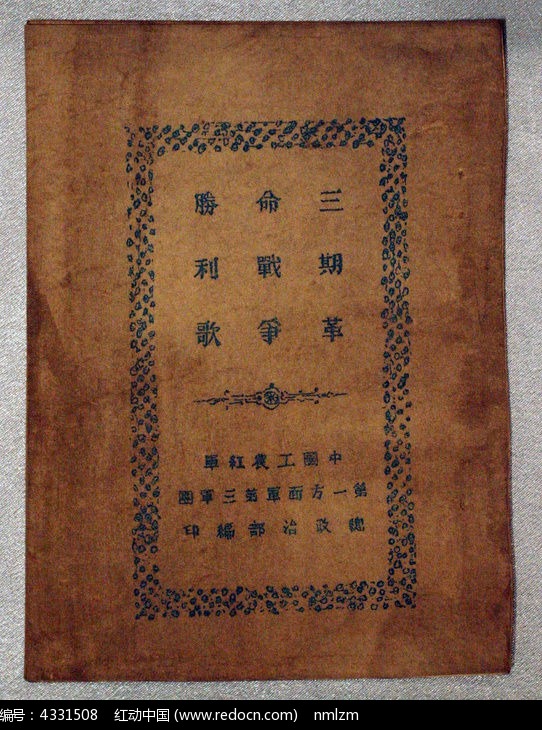 三期革
命戰爭
勝利歌
中國工農紅軍
第一方面軍第三軍團
總政治部編印
编号：4331508 红动中国 (www.redocn.com) nmlzm